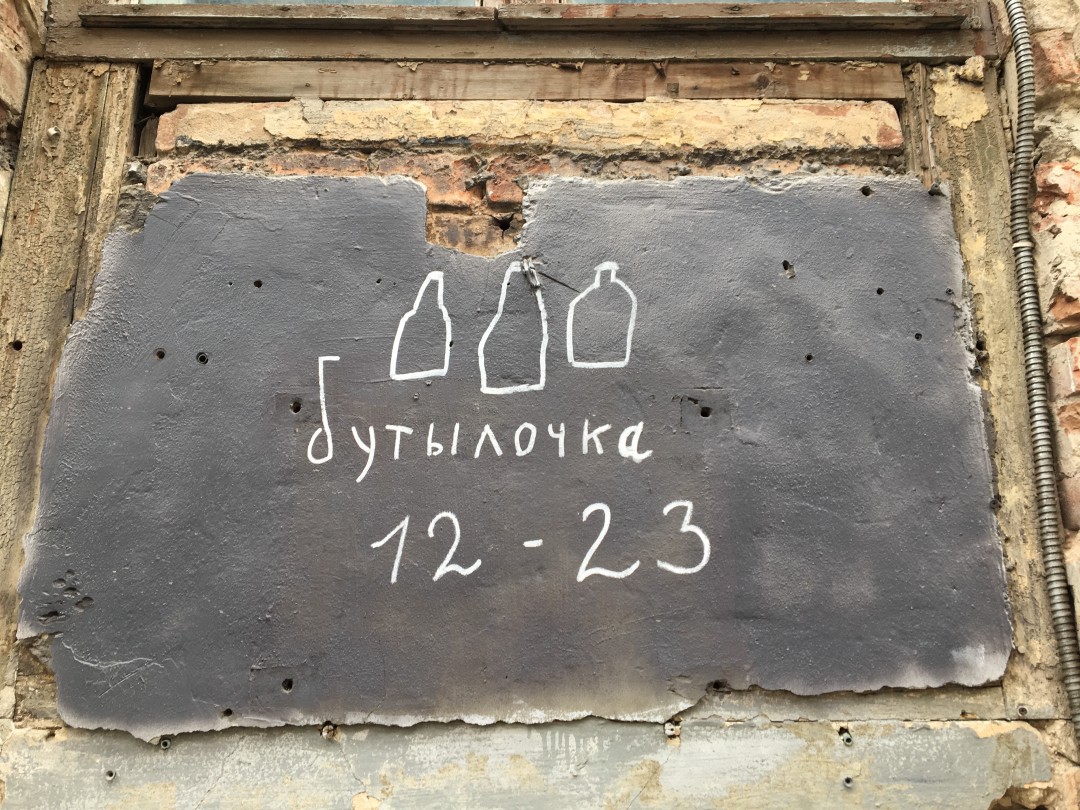 бутылочка
12 - 23